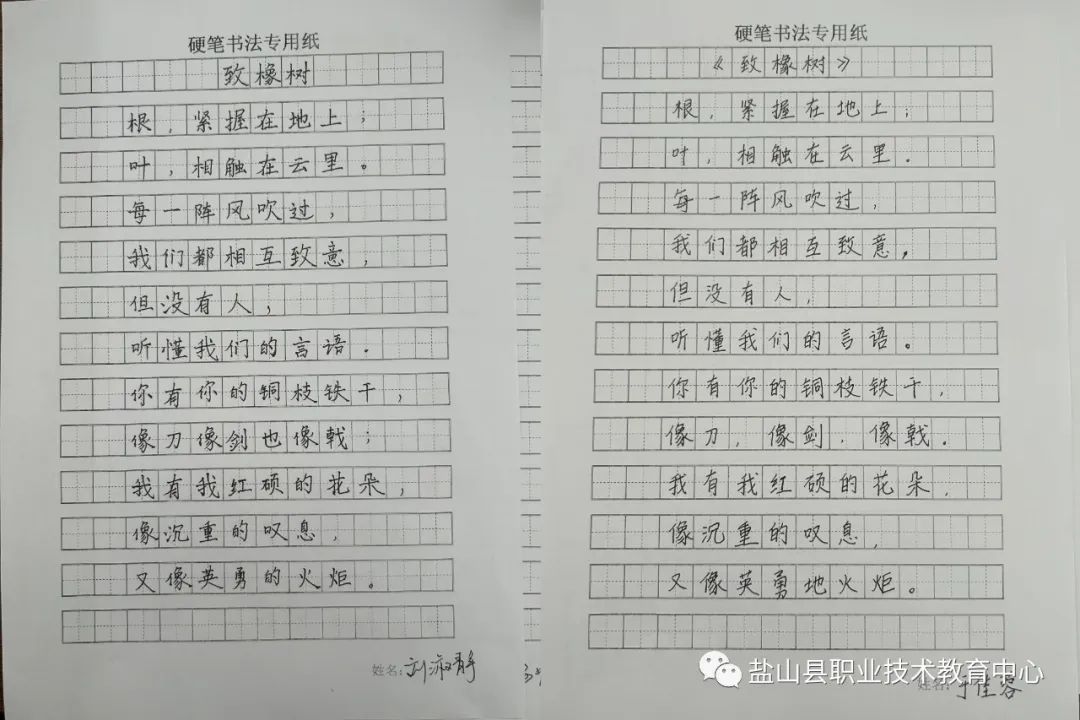 硬笔书法专用纸
致橡树
根，紧握在地上；
叶，相触在云里。
每一阵风吹过，
我们都相互致意，
但没有人，
听懂我们的言语.
你有你的铜枝铁干，
像刀像剑也像戟；
我有我红硕的花朵，
像沉重的叹息，
又像英勇的火炬。
姓名:刘淑静
硬笔书法专用纸
《致橡树》
根，紧握在地上；
叶，相触在云里.
每一阵风吹过，
我们都相互致意，
但没有人，
听懂我们的言语。
你有你的铜枝铁干，
像刀，像剑，像戟.
我有我红硕的花朵，
像沉重的叹息，
又像英勇地火炬。
姓名:于佳容
盐山县职业技术教育中心